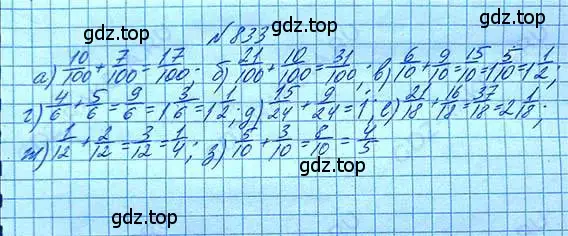 gdz.top
№833
gdz.top gdz.top
а) 10/100 + 7/100 = 17/100; б) 21/100 + 10/100 = 31/100; в) 6/10 + 9/10 = 15/10 = 1 5/10 = 1 1/2;
г) 4/6 + 5/6 = 9/6 = 1 3/6 = 1 1/2; д) 15/24 + 9/24 = 1; е) 21/18 + 16/18 = 37/18 = 2 1/18;
ж) 1/12 + 2/12 = 3/12 = 1/4; з) 5/10 + 3/10 = 8/10 = 4/5
gdz.top gdz.top
gdz.top